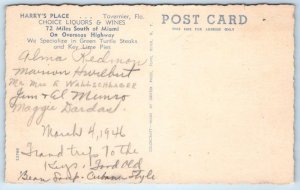 HARRY'S PLACE Tavernier, Fla.
CHOICE LIQUORS & WINES
72 Miles South of Miami
On Overseas Highway
We Specialize in Green Turtle Steaks
and Key Lime Pies
POST CARD
Alma Redmon
Marion Hurlburt
Mr Mrs E Wallschlager
Jim & Al Munro
Maggie Dardas
March 4, 1946
Grand trip To the
Keys. Good Old
Bean Soup - Cuban Style